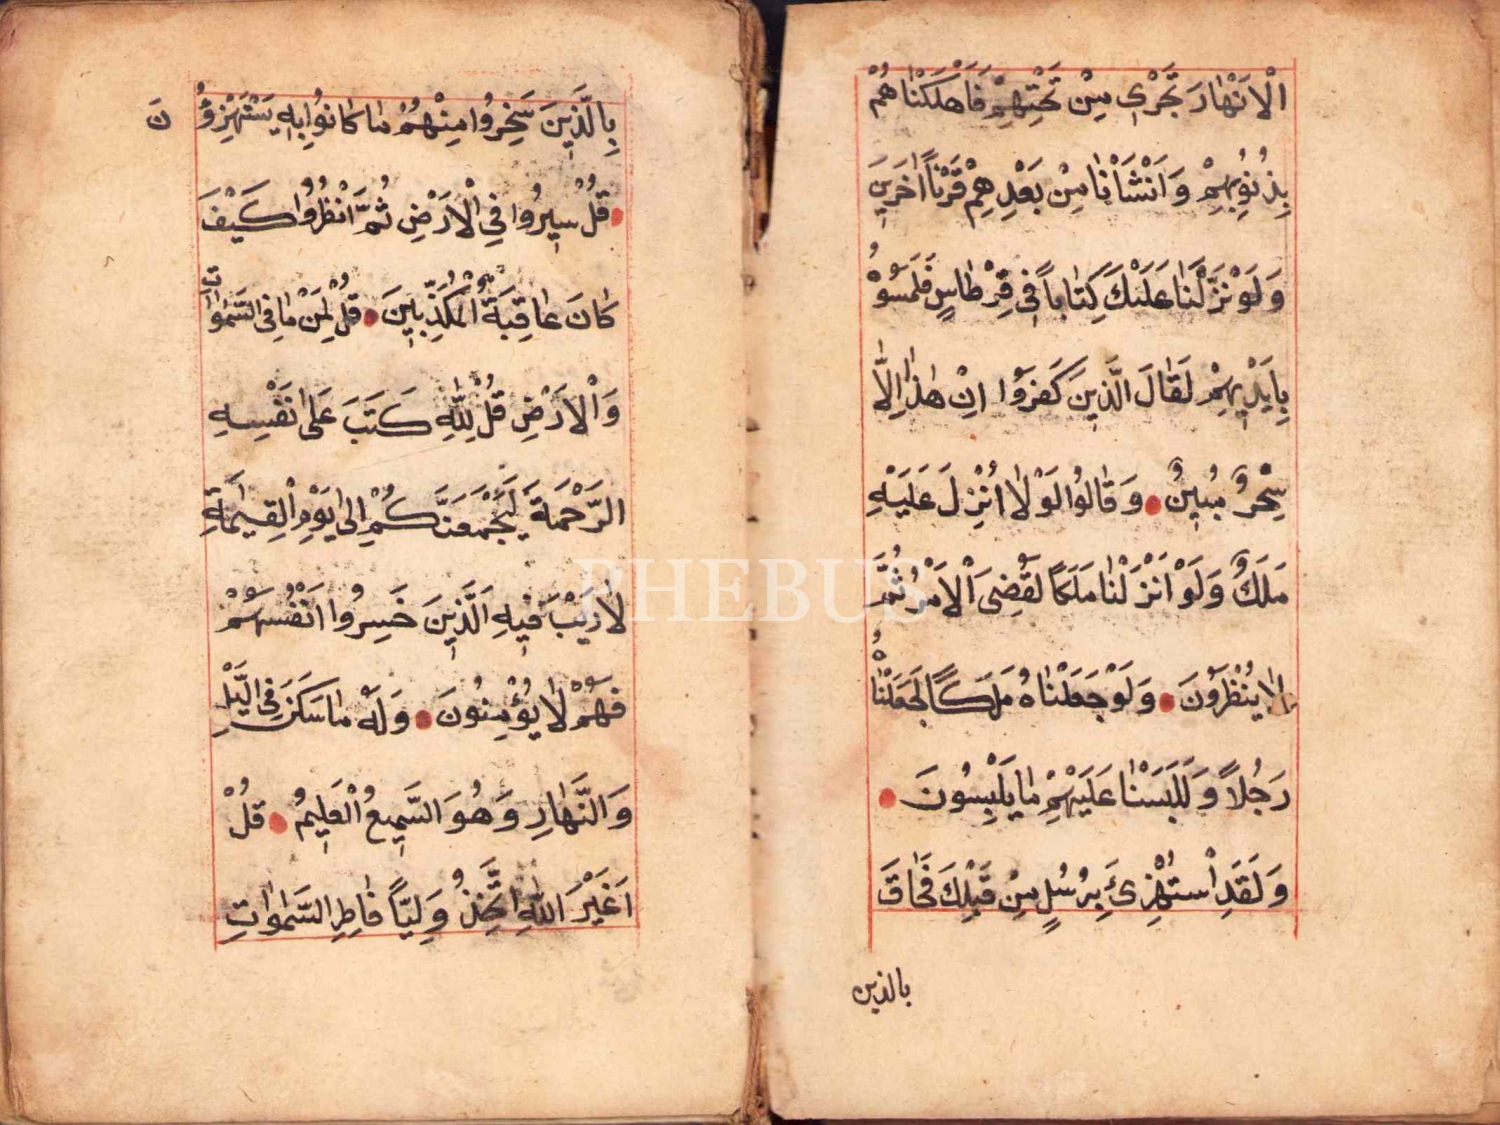 الْاَنْهٰارَ تَجْرٖي مِنْ تَحْتِهِمْ فَاَهْلَكْنٰاهُمْ
بِذُنُوبِهِمْ وَاَنْشَاْنٰا مِنْ بَعْدِهِمْ قَرْناً اٰخَرٖينَ
وَلَوْ نَزَّلْنٰا عَلَيْكَ كِتٰاباً فٖي قِرْطٰاسٍ فَلَمَسُوهُ
بِاَيْدٖيهِمْ لَقٰالَ الَّذٖينَ كَفَرُوا اِنْ هٰذٰا اِلّٰا
سِحْرٌ مُبٖينٌ وَقٰالُوا لَوْ لٰا اُنْزِلَ عَلَيْهِ
مَلَكٌ وَلَوْ اَنْزَلْنٰا مَلَكاً لَقُضِيَ الْاَمْرُ ثُمَّ
لٰا يُنْظَرُونَ وَلَوْ جَعَلْنٰاهُ مَلَكاً لَجَعَلْنٰاهُ
رَجُلاً وَلَلَبَسْنٰا عَلَيْهِمْ مٰا يَلْبِسُونَ
وَلَقَدِ اسْتُهْزِئَ بِرُسُلٍ مِنْ قَبْلِكَ فَحٰاقَ
بالذين
بِالَّذٖينَ سَخِرُوا مِنْهُمْ مٰا كٰانُوا بِهٖ يَسْتَهْزِؤُنَ
قُلْ سٖيرُوا فِي الْاَرْضِ ثُمَّ انْظُرُوا كَيْفَ
كٰانَ عٰاقِبَةُ الْمُكَذِّبٖينَ قُلْ لِمَنْ مٰا فِي السَّمٰوٰاتِ
وَالْاَرْضِ قُلْ لِلّٰهِ كَتَبَ عَلىٰ نَفْسِهِ
الرَّحْمَةَ لَيَجْمَعَنَّكُمْ اِلىٰ يَوْمِ الْقِيٰمَةِ
لٰا رَيْبَ فٖيهِ اَلَّذٖينَ خَسِرُوا اَنْفُسَهُمْ
فَهُمْ لٰا يُؤْمِنُونَ وَلَهُ مٰا سَكَنَ فِي الَّيْلِ
وَالنَّهٰارِ وَهُوَ السَّمٖيعُ الْعَلٖيمُ قُلْ
اَغَيْرَ اللّٰهِ اَتَّخِذُ وَلِيّاً فٰاطِرِ السَّمٰوٰاتِ
PHEBUS